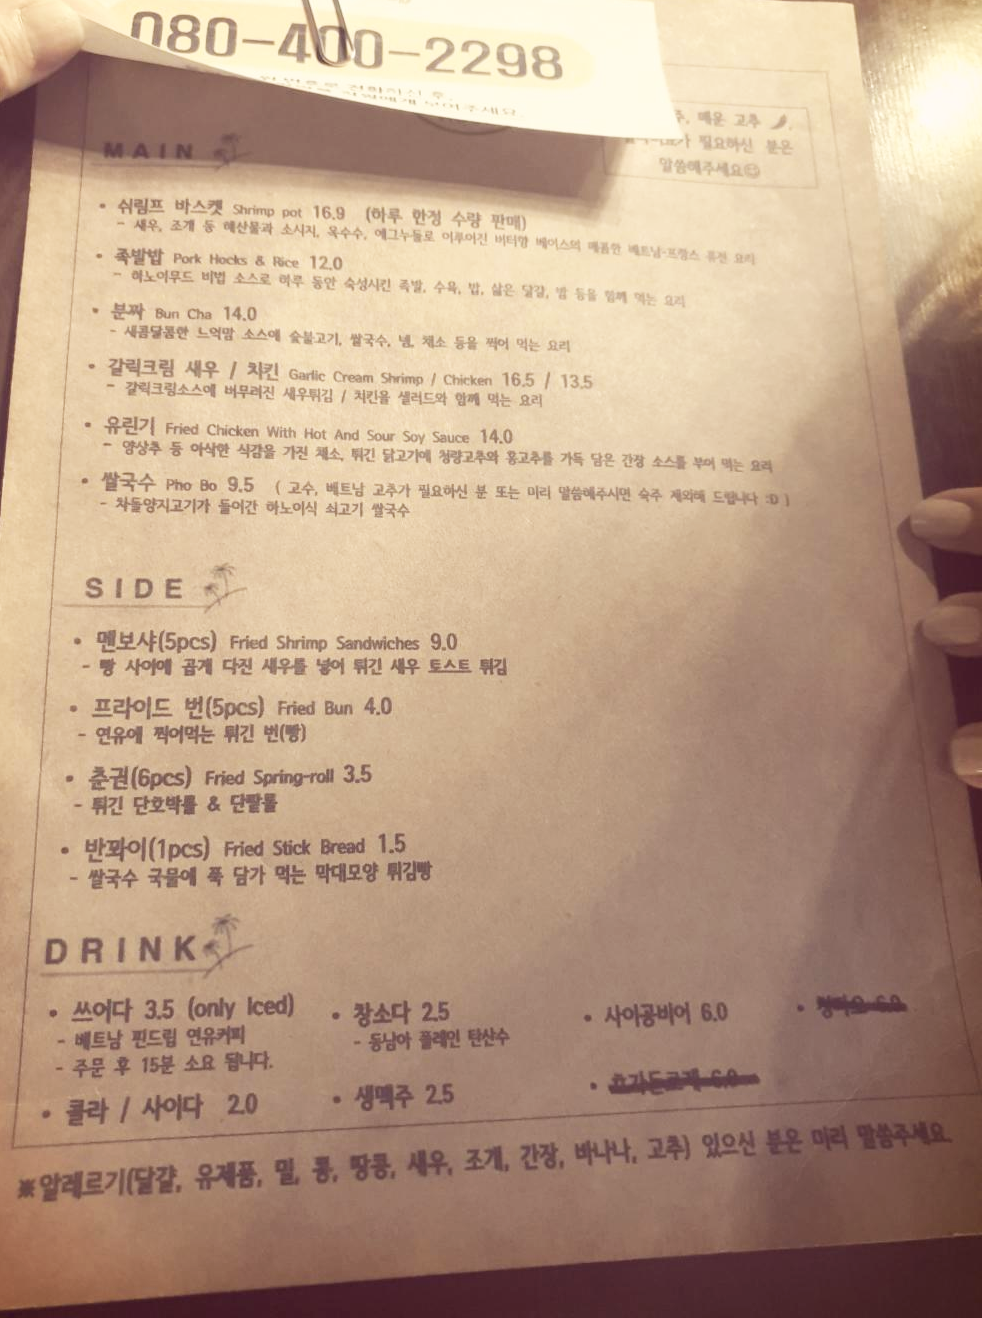 080-400-2298
매운 고추
필요하신 분은
말씀해주세요
MAIN
• 쉬림프 바스켓 Shrimp pot 16.9 (하루 한정 수량 판매)
- 새우, 조개 등 해산물과 소시지, 옥수수, 에그누들로 이루어진 버터향 베이스의 매콤한 베트남-프랑스 퓨전 요리
• 족발밥 Pork Hocks & Rice 12.0
- 하노이푸드 비법 소스로 하루 동안 숙성시킨 족발, 수육, 밥, 삶은 달걀, 밤 등을 함께 먹는 요리
• 분짜 Bun Cha 14.0
- 새콤달콤한 느억맘 소스에 숯불고기, 쌀국수, 넴, 채소 등을 찍어 먹는 요리
• 갈릭크림 새우 / 치킨 Garlic Cream Shrimp / Chicken 16.5 / 13.5
- 갈릭크림소스에 버무려진 새우튀김 / 치킨을 샐러드와 함께 먹는 요리
• 유린기 Fried Chicken With Hot And Sour Soy Sauce 14.0
- 양상추 등 아삭한 식감을 가진 채소, 튀긴 닭고기에 청량고추와 홍고추를 가득 담은 간장 소스를 부어 먹는 요리
• 쌀국수 Pho Bo 9.5 ( 고수, 베트남 고추가 필요하신 분 또는 미리 말씀해주시면 숙주 제외해 드립니다 :D )
- 차돌양지고기가 들어간 하노이식 쇠고기 쌀국수
SIDE
• 멘보샤(5pcs) Fried Shrimp Sandwiches 9.0
- 빵 사이에 곱게 다진 새우를 넣어 튀긴 새우 토스트 튀김
• 프라이드 번(5pcs) Fried Bun 4.0
- 연유에 찍어먹는 튀긴 번(빵)
• 춘권(6pcs) Fried Spring-roll 3.5
- 튀긴 단호박롤 & 단팥롤
• 반꽈이(1pcs) Fried Stick Bread 1.5
- 쌀국수 국물에 푹 담가 먹는 막대모양 튀김빵
DRINK
• 쓰어다 3.5 (only Iced)
- 베트남 핀드립 연유커피
- 주문 후 15분 소요 됩니다.
• 콜라 / 사이다 2.0
• 창소다 2.5
- 동남아 플레인 탄산수
• 생맥주 2.5
• 사이공비어 6.0
※알레르기(달걀, 유제품, 밀, 콩, 땅콩, 새우, 조개, 간장, 바나나, 고추) 있으신 분은 미리 말씀주세요.